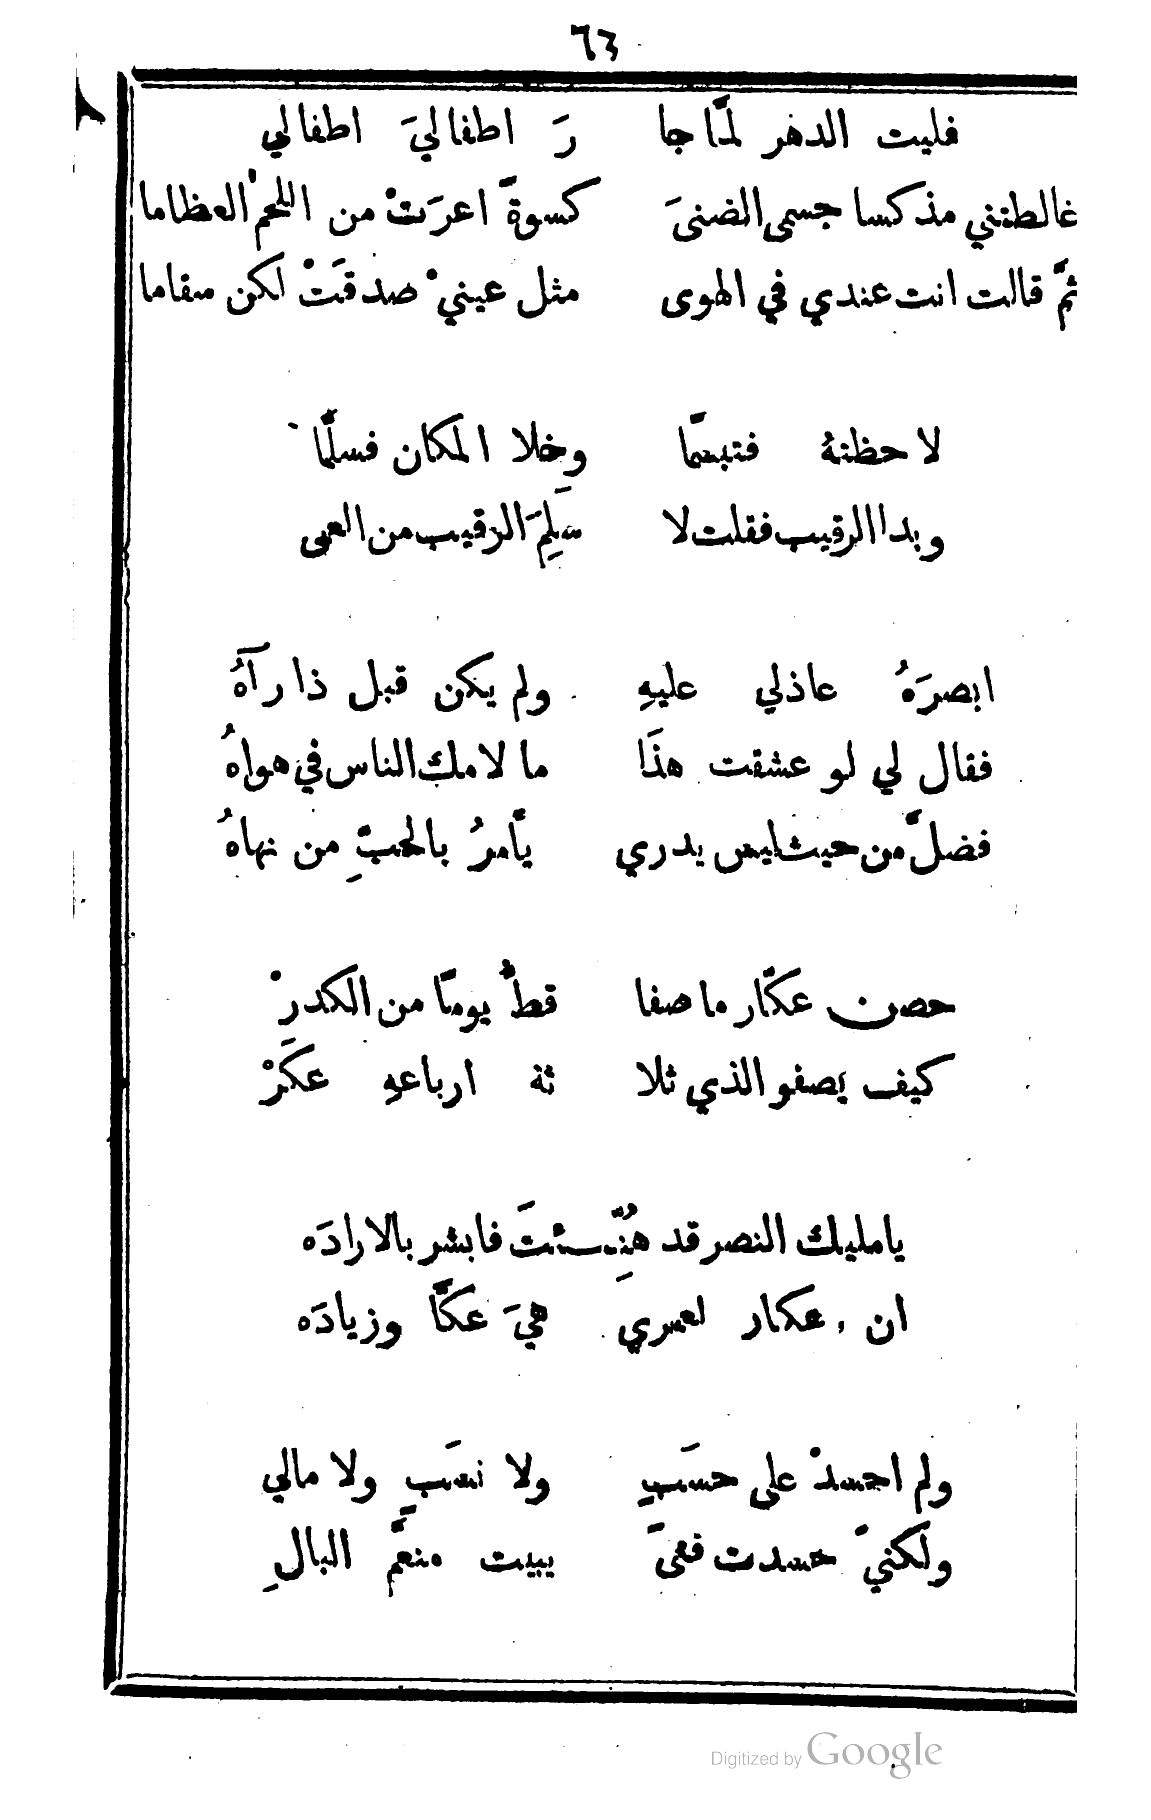 ٦٣
فليت الدهر لمَّا جا رَ اطفا ليَ اطفا لي
غالطتني مذ كسا جسمي الضنىَ كسوةً اعرَتْ من اللحمْ العظاما
ثمَّ قالت انت عندي في الهوى مثل عينيْ صدقَتْ لكن سقاما
لاحظتهُ فتبسَّما وخلا المكان فسلَّما
وبدا الرقيب فقلت لا سَلِمَ الرقيب من العمى
ابصرَهُ عاذلي عليهِ ولم يكن قبل ذا رآهُ
فقال لي لو عشقت هذَا ما لامك الناس في هواهُ
فضلَّ من حيث ليس يدري يأمرُ بالحبِّ من نهاهُ
حصن عكَّار ما صفا قطْ يومًا من الكدرْ
كيف يصفو الذي ثلا ثة ارباعهِ عكَرْ
يا مليك النصر قد هُنِّـئتَ فابشر بالارادَه
ان عكار لعمري هيَ عكَّا وزيادَه
ولم احسدْ على حسَبٍ ولا نسَبٍ ولا مالي
ولكنيْ حسدت فتىً يبيت منعمَّ البالِ
Digitized by Google